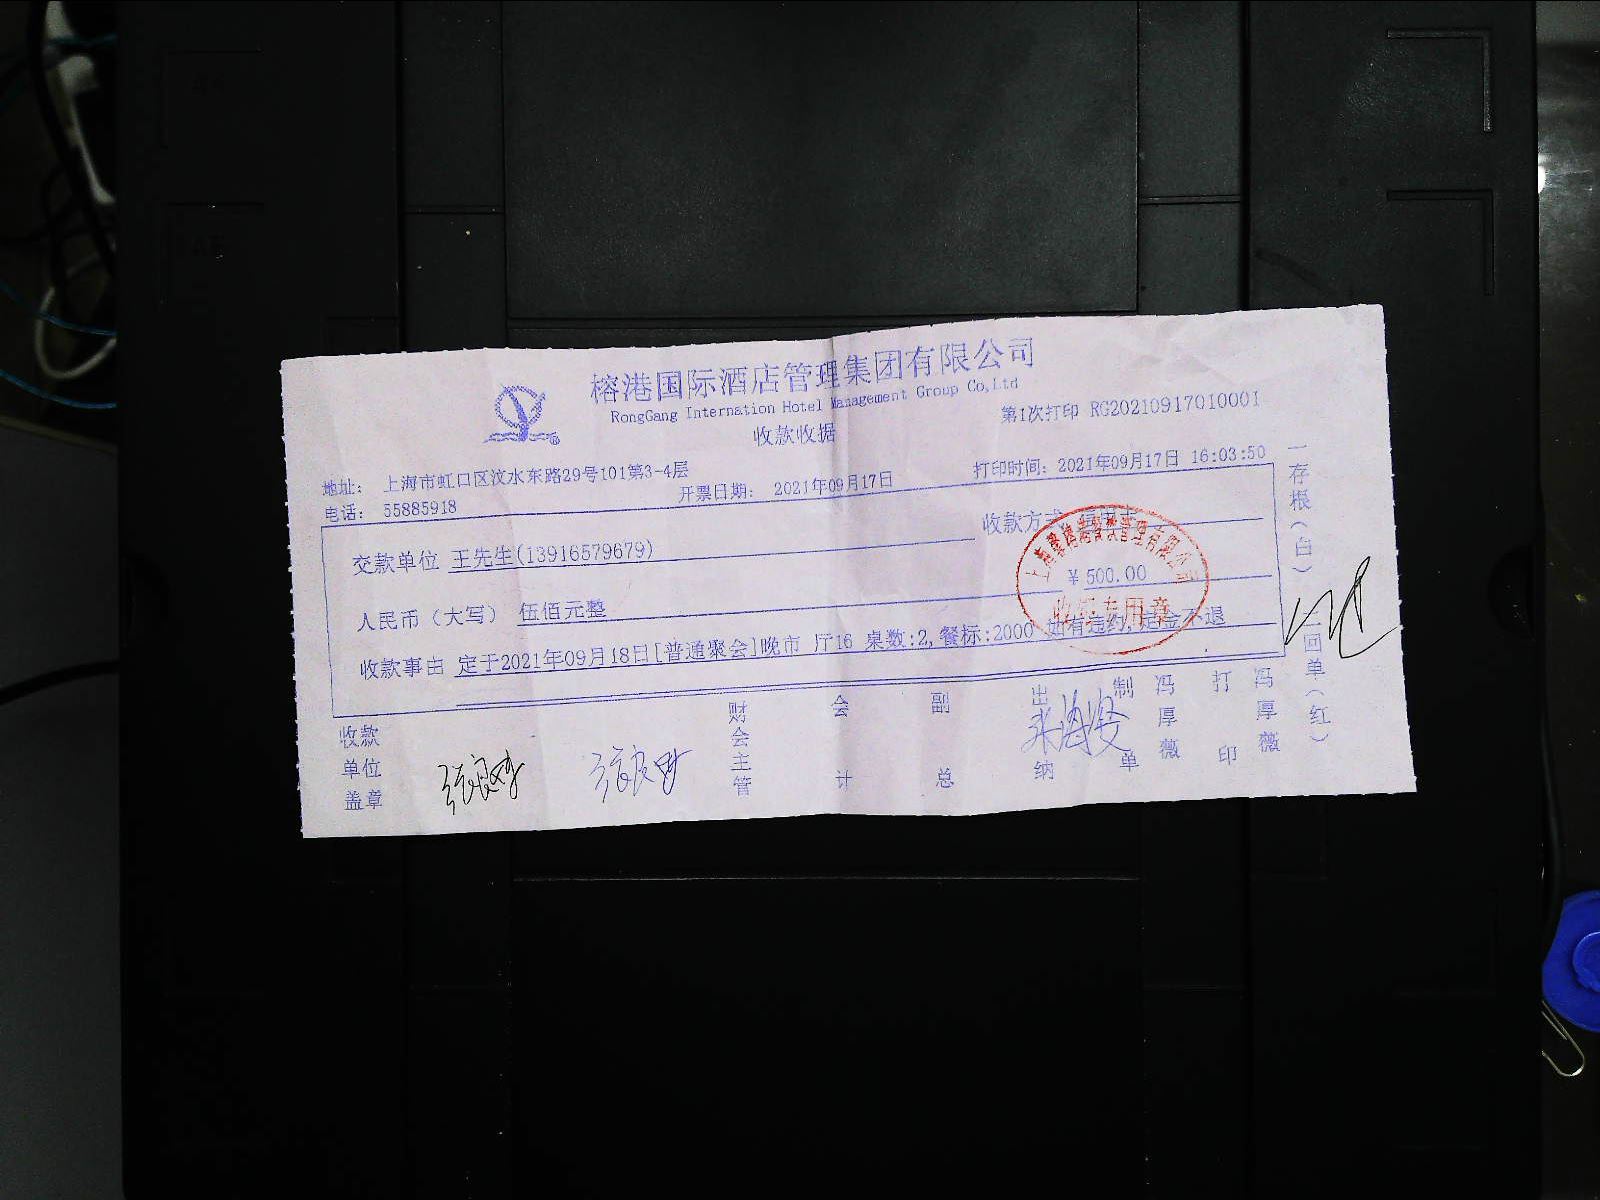 榕港国际酒店管理集团有限公司
RongGang Internation Hotel Management Group Co,Ltd
收款收据
第1次打印 RG20210917010001
地址: 上海市虹口区汶水东路29号101第3-4层
电话: 55885918
开票日期: 2021年09月17日
打印时间: 2021年09月17日 16:03:50
交款单位 王先生(13916579679)
收款方式 信用卡
人民币（大写） 伍佰元整
¥ 500.00
收款事由 定于2021年09月18日[普通聚会]晚市 厅16 桌数:2,餐标:2000 如有违约,定金不退
收款单位盖章
财会主管
会计
副总
出纳
制单
冯厚薇
打印
冯厚薇
一存根(白)
二回单(红)
专用章